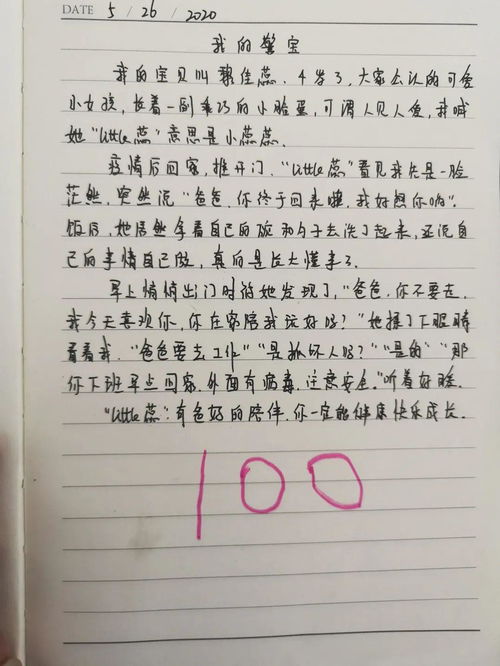 DATE 5 / 26 / 2020
我的警宝
我的宝贝叫黎佳蕊，4岁了，大家公认的可爱
小女孩，长着一副乖巧的小脸蛋，可谓人见人爱，我喊
她“little蕊”意思是小蕊蕊。
疫情后回家，推开门，“little蕊”看见我先是一脸
茫然，突然说“爸爸，你终于回来啦，我好想你哟”。
饭后，她居然拿着自己的碗和勺子去洗了起来，还说自
己的事情自己做，真的是长大懂事了。
早上悄悄出门时被她发现了，“爸爸，你不要走，
我今天喜欢你，你在家陪我玩好吗？”她揉了下眼睛
看着我，“爸爸要去工作”“是抓坏人吗？”“是的”“那
你下班早点回家，外面有病毒，注意安全。”听着好暖。
“little蕊”，有爸妈的陪伴，你一定能健康快乐成长。
100